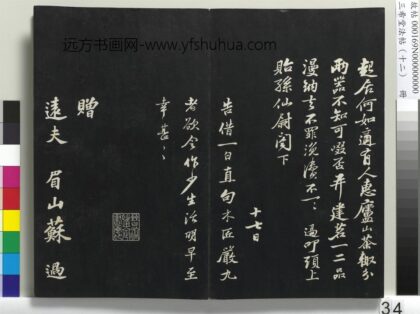 起居何如適有人惠廬山茶輙分
兩器不知可啜否并建茗一二品
漫納去不罪浼瀆不一一過叩頭上
貽孫仙尉閤下
十七日
告借一日直句木匠嚴九
者欲令作少生活明早至
幸甚々
贈
遠夫 眉山蘇過
远方书画网-www.yfshuhua.com
故帖 000169N000000000
三希堂法帖(十二) 冊
34